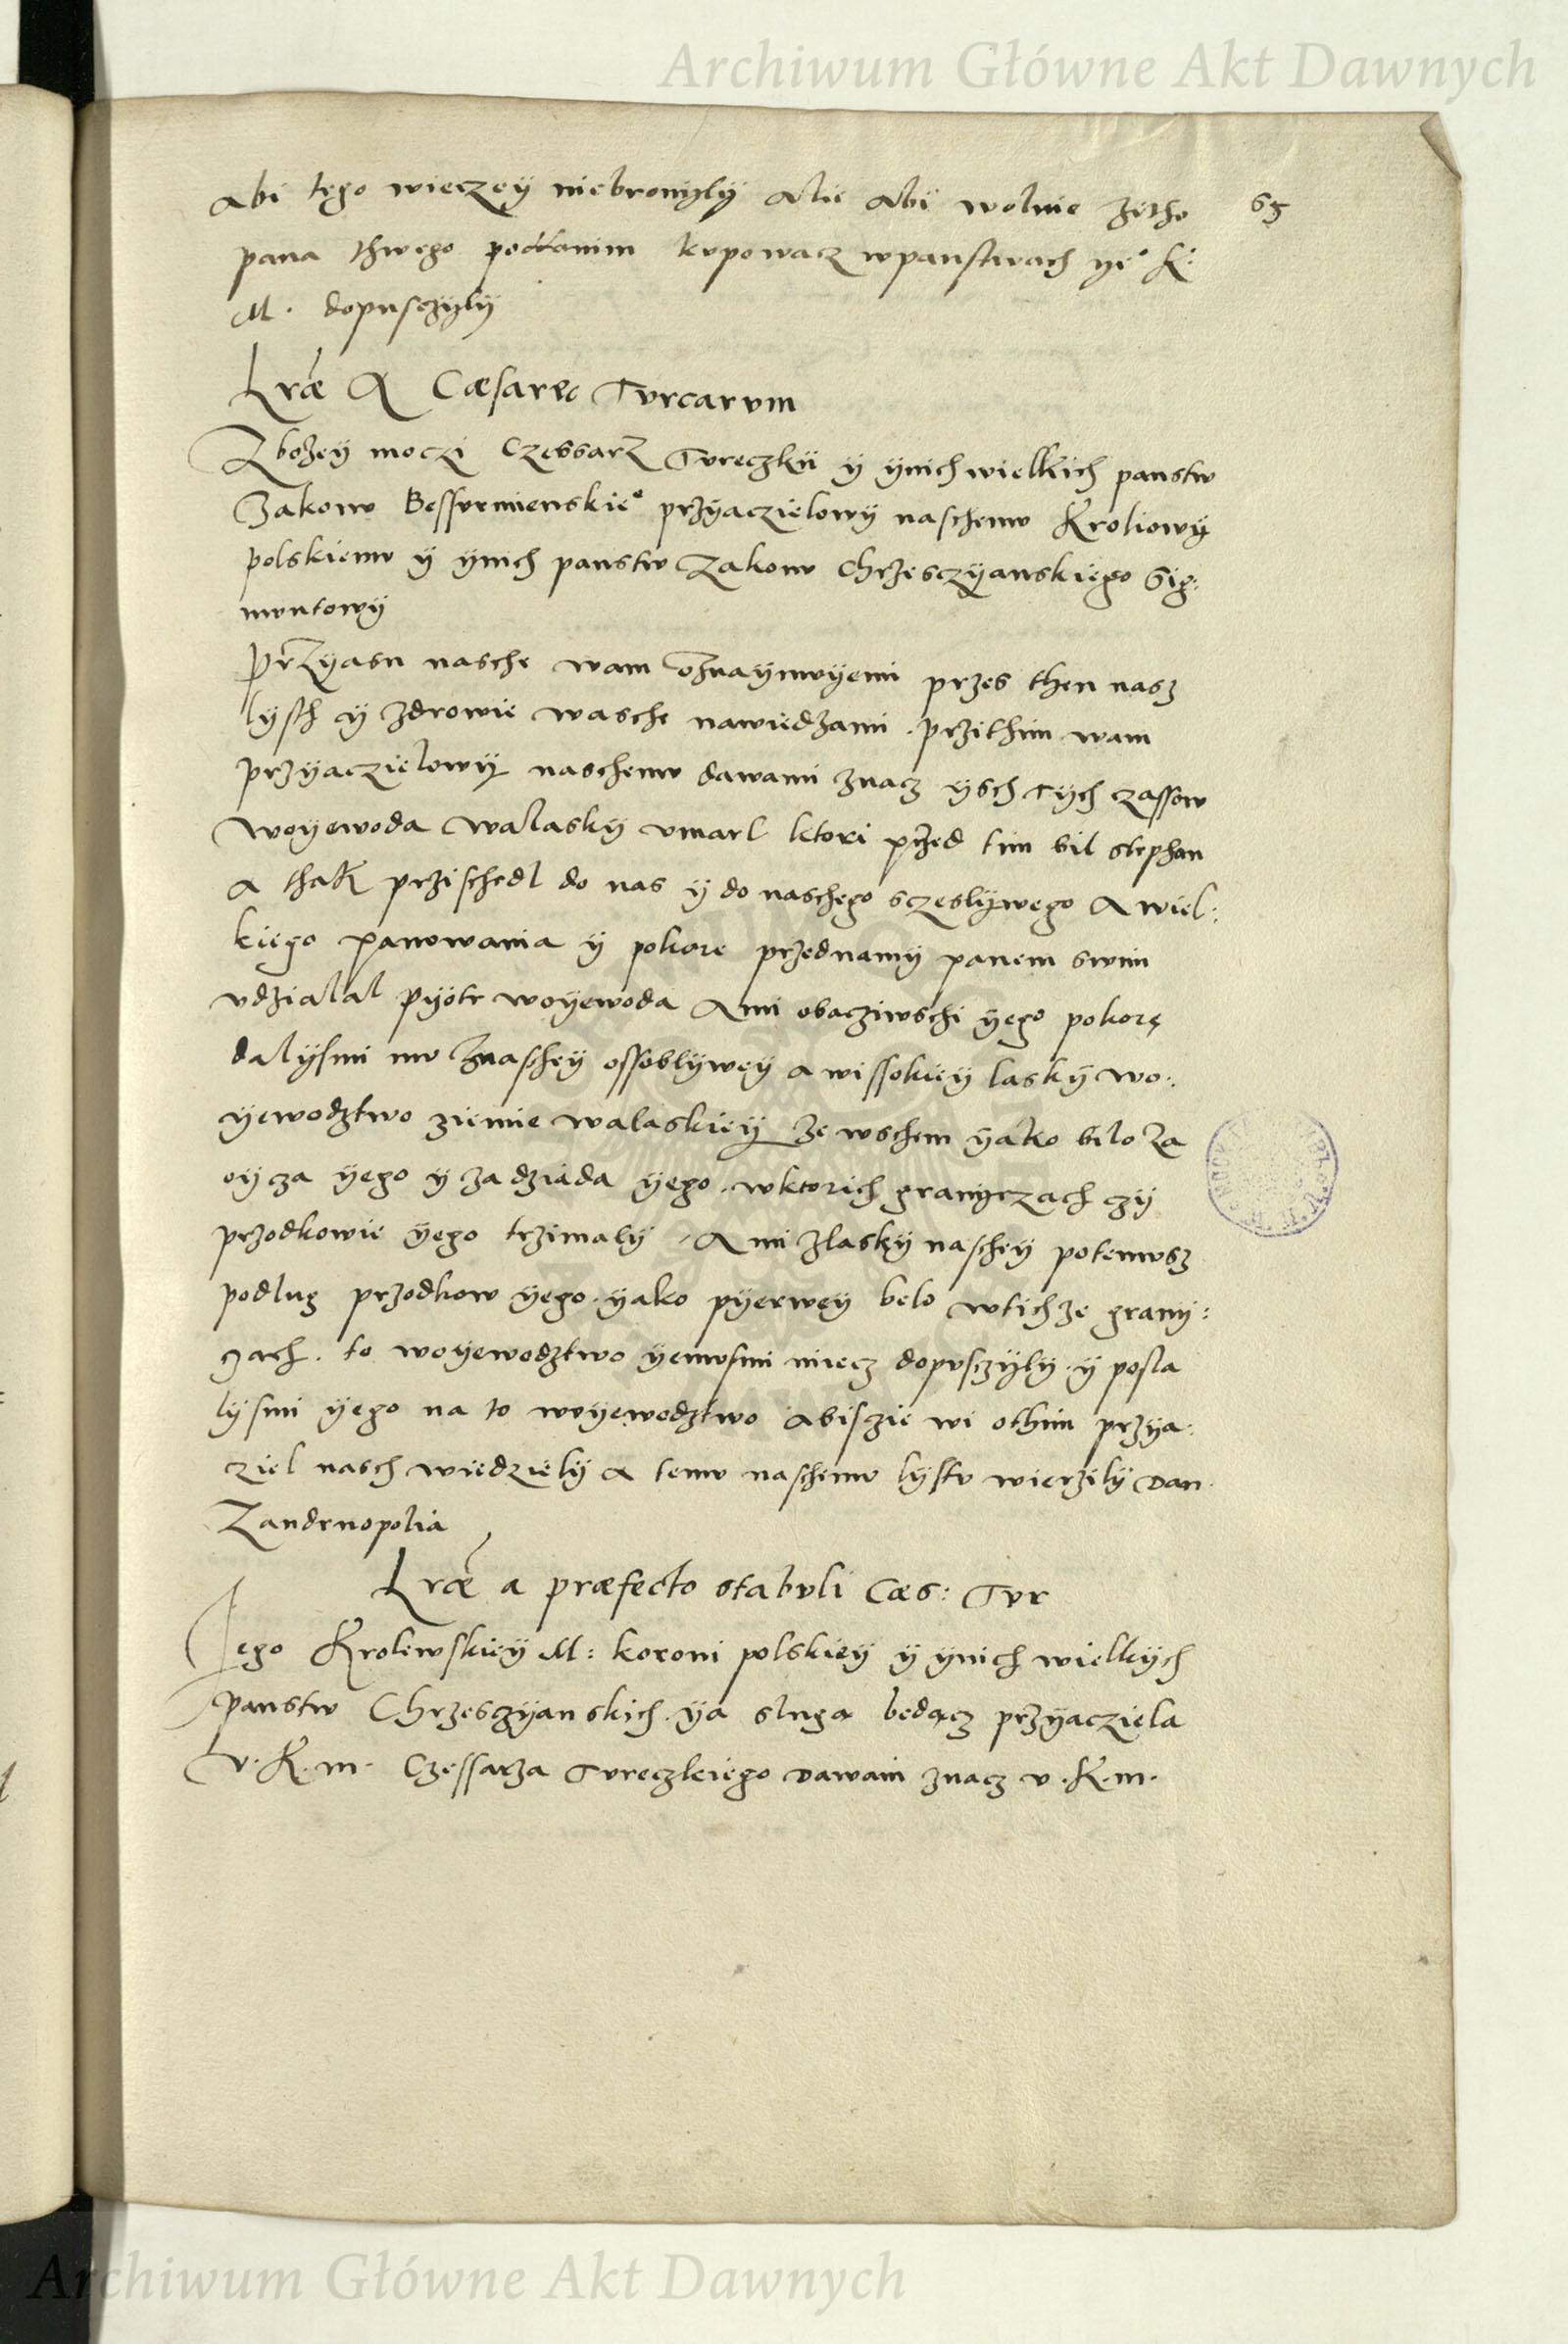 Archiwum Główne Akt Dawnych
abi tego wieczey niebronyly alie abi wolnie zitho
65
pana thwego poddanim kupowacz wpanstwach ye° K:
M. dopusczyly
Lrae A Caesare Turcarum
Zbozey moczi Czessarz Tureczkii y ynich wielkich panstw
Zakonu Bessurmienskie° przyaczielowy naschemu Kroliowy
polskiemu y ynich panstw Zakonu Chrzesczyanskiego Sig:
muntowy
Przyasn nasche wam oznaymuyemi przes then nasz
lysth y zdrowie wasche nawiedzami. przithim wam
przyaczielowy naschemu dawami znacz ysch tych czassow
Woyewoda Walasky umarl ktori przed tim bil stephan
a thak przischedl do nas y do naschego sczeslywego a wiel:
kiego panowania y pokore przednamy panem swim
udzialal pyotr woyewoda Ami obacziwschi yego pokorę
dalysmi mu znaschey ossoblywey a wissokiey lasky wo:
yewodztwo ziemie walaskiey ze wschem yako bilo za
oycza yego y za dziada yego. wktorich granyczach czy
przodkowie yego trzimaly, A mi zlasky naschey potemusz
podlug przodkow yego. yako pyerwey belo wtichze grany:
czach. to woyewodztwo yemusmi miecz dopusczyly. y posla
lysmi yego na to woyewodztwo abisczie wi othim przya:
ziel nasch wiedziely a temu naschemu lystu wierzily Dan.
Zandrnopolia
Lrae a praefecto stabuli Caes: Tur
Jego Krolewskiey M: koroni polskiey y ynich wielkych
panstw Chrzesczyanskich. ya sluga bedącz przyacziela
V. K. m. Czessarza Tureczkiego dawam znacz v. K. m.
Archiwum Główne Akt Dawnych